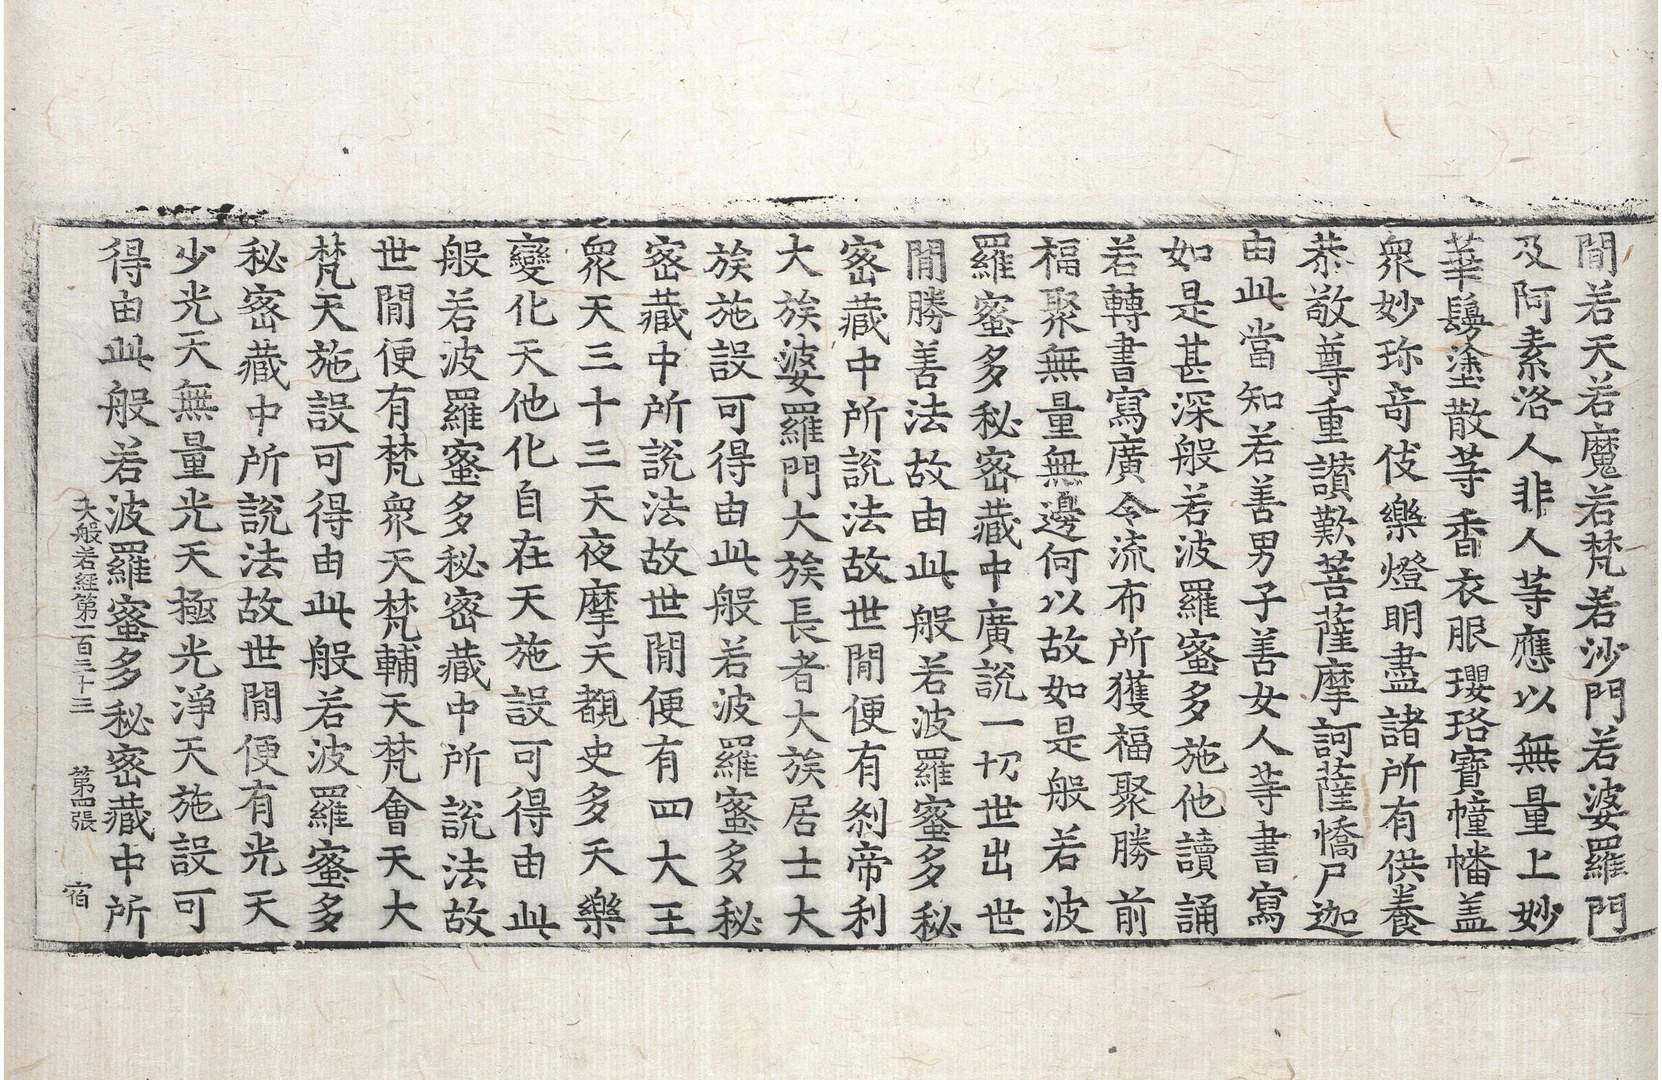 閒若天若魔若梵若沙門若婆羅門
及阿素洛人非人等應以無量上妙
華鬘塗散等香衣服瓔珞寶幢幡盖
衆妙珎竒伎樂燈明盡諸所有供養
恭敬尊重讃歎菩薩摩訶薩憍尸迦
由此當知若善男子善女人等書寫
如是甚深般若波羅蜜多施他讀誦
若轉書寫廣令流布所獲福聚勝前
福聚無量無邊何以故如是般若波
羅蜜多秘密藏中廣說一切世出世
閒勝善法故由此般若波羅蜜多秘
密藏中所說法故世閒便有刹帝利
大族婆羅門大族長者大族居士大
族施設可得由此般若波羅蜜多秘
密藏中所說法故世閒便有四大王
衆天三十三天夜摩天覩史多天樂
變化天他化自在天施設可得由此
般若波羅蜜多秘密藏中所說法故
世閒便有梵衆天梵輔天梵會天大
梵天施設可得由此般若波羅蜜多
秘密藏中所說法故世閒便有光天
少光天無量光天極光淨天施設可
得由此般若波羅蜜多秘密藏中所
大般若経第一百三十三 第四張 宿